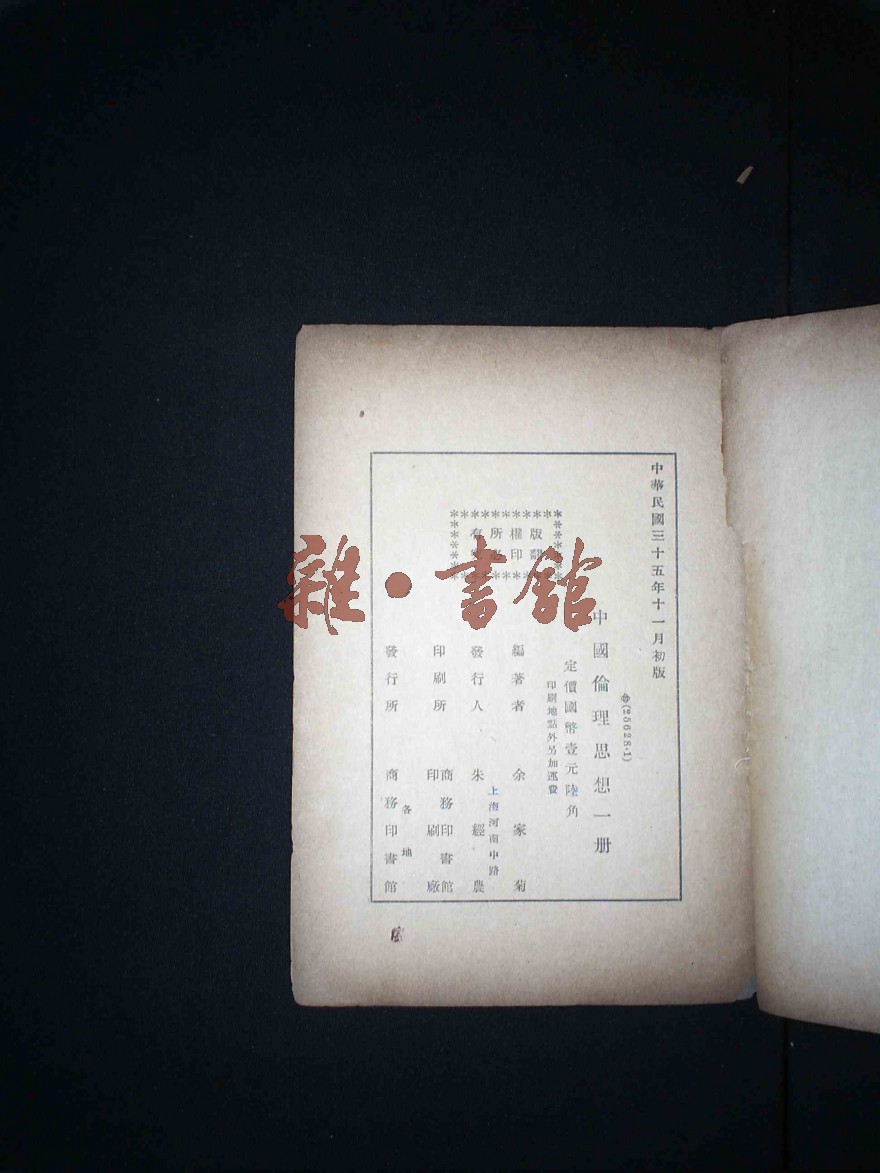 中華民國三十五年十一月初版
(25628·1)
中國倫理思想一册
定價國幣壹元陸角
印刷地點外另加運費
版權所有
翻印必究
編著者 余家菊
上海河南中路
發行人 朱經農
印刷所 商務印書館印刷廠
各地
發行所 商務印書館
雜·書館